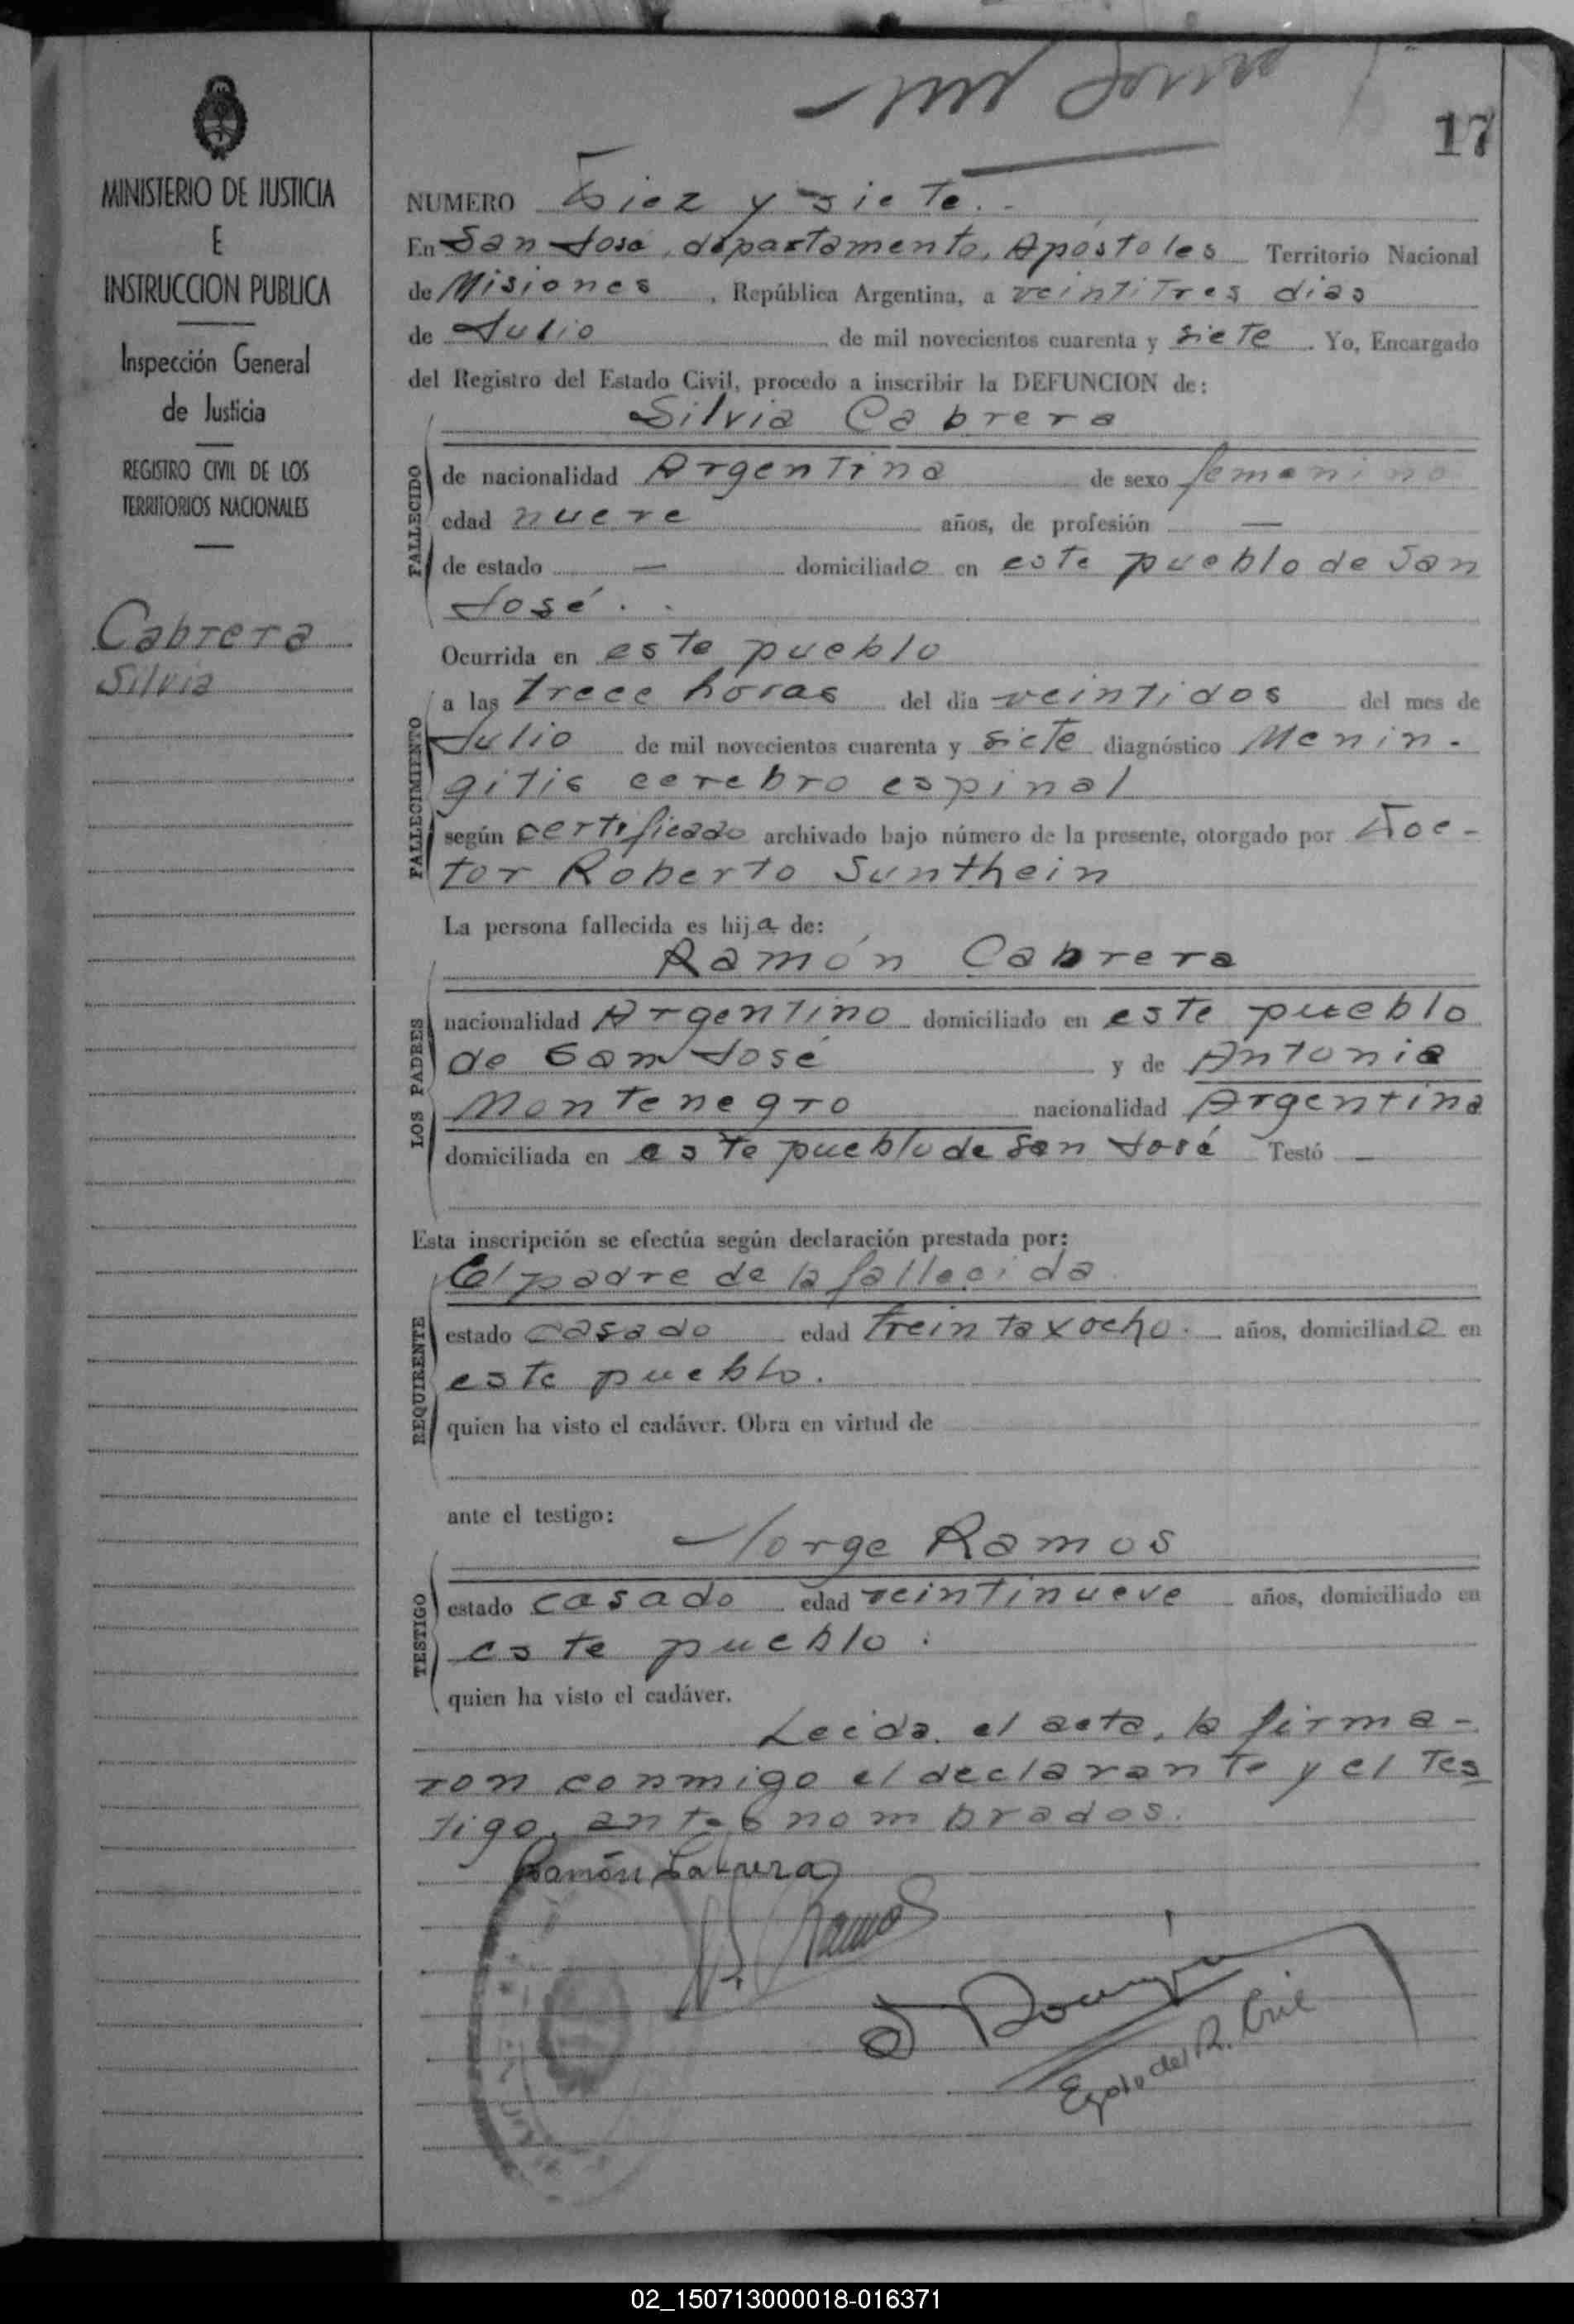 17
MINISTERIO DE JUSTICIA
E
INSTRUCCION PUBLICA
Inspección General
de Justicia
REGISTRO CIVIL DE LOS
TERRITORIOS NACIONALES
Cabrera
Silvia
NUMERO Diez y siete..
En San José, departamento, Apóstoles Territorio Nacional
de Misiones, República Argentina, a veintitres dias
de Julio de mil novecientos cuarenta y siete. Yo, Encargado
del Registro del Estado Civil, procedo a inscribir la DEFUNCION de:
Silvia Cabrera
FALLECIDO
de nacionalidad Argentina de sexo femenino
edad nueve años, de profesión —
de estado — domiciliado en este pueblo de San
José. .
Ocurrida en este pueblo
FALLECIMIENTO
a las trece horas del dia veintidos del mes de
Julio de mil novecientos cuarenta y siete diagnóstico Menin-
gitis cerebro espinal
según certificado archivado bajo número de la presente, otorgado por Doc-
tor Roberto Sunthein
La persona fallecida es hija de:
Ramón Cabrera
LOS PADRES
nacionalidad Argentino domiciliado en este pueblo
de San José y de Antonia
Montenegro nacionalidad Argentina
domiciliada en este pueblo de San José Testó —
Esta inscripción se efectúa según declaración prestada por:
El padre de la fallecida
REQUIRENTE
estado casado edad treinta y ocho. años, domiciliado en
este pueblo.
quien ha visto el cadáver. Obra en virtud de
ante el testigo:
Jorge Ramos
TESTIGO
estado casado edad veintinueve años, domiciliado en
este pueblo.
quien ha visto el cadáver.
Leida el acta, la firma-
ron conmigo el declarante y el tes
tigo, antes nombrados.
Ramón Cabrera
Ramos
del R. Civil
02_150713000018-016371